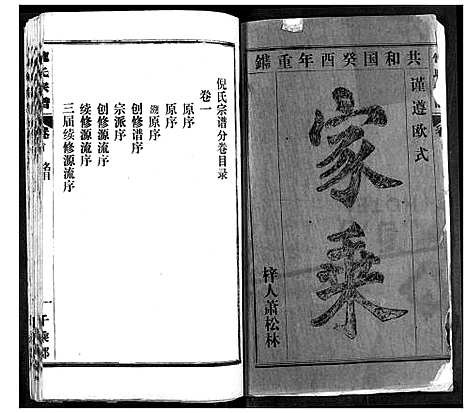 共和国癸酉年重鐫
谨遵欧式
家乘
梓人萧松林
倪氏宗谱分卷目录
卷一
原序
原序
创修谱序
宗派序
创修源流序
续修源流序
三届续修源流序
倪氏宗谱
卷首
名目
一
千乘郡